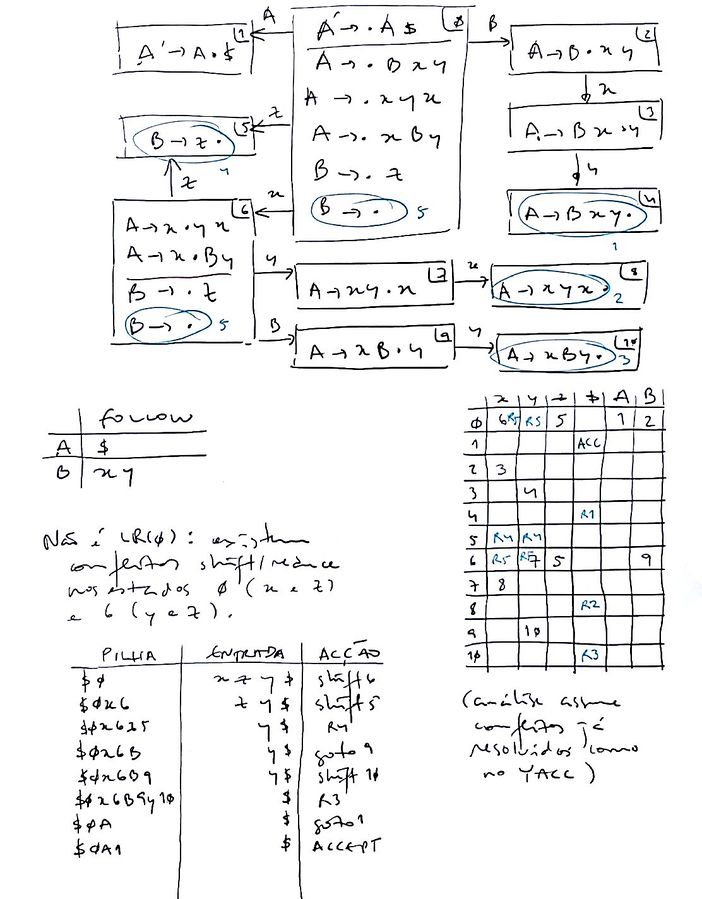 A' → A · $ 1
A
A' → · A $ 0
A → · B x y
A → · x y x
A → · x B y
B → · z
B → · 5
B
A → B · x y 2
x
A → B x · y 3
y
A → B x y · 4
1
z
B → z · 5
4
z
x
A → x · y x 6
A → x · B y
B → · z
B → · 5
y
A → x y · x 7
x
A → x y x · 8
2
B
A → x B · y 9
y
A → x B y · 10
3
FOLLOW
A $
B x y
Não é LR(0) : existem
conflitos shift/reduce
nos estados 0 (x e z)
e 6 (y e z).
x y z $ A B
0 6 R5 R5 5 1 2
1 ACC
2 3
3 4
4 R1
5 R4 R4
6 R5 R5 7 5 9
7 8
8 R2
9 10
10 R3
(análise assume
conflitos já
resolvidos como
no YACC)
PILHA ENTRADA ACÇÃO
$0 x z y $ shift 6
$0x6 z y $ shift 5
$0x6z5 y $ R4
$0x6B y $ goto 9
$0x6B9 y $ shift 10
$0x6B9y10 $ R3
$0A $ goto 1
$0A1 $ ACCEPT